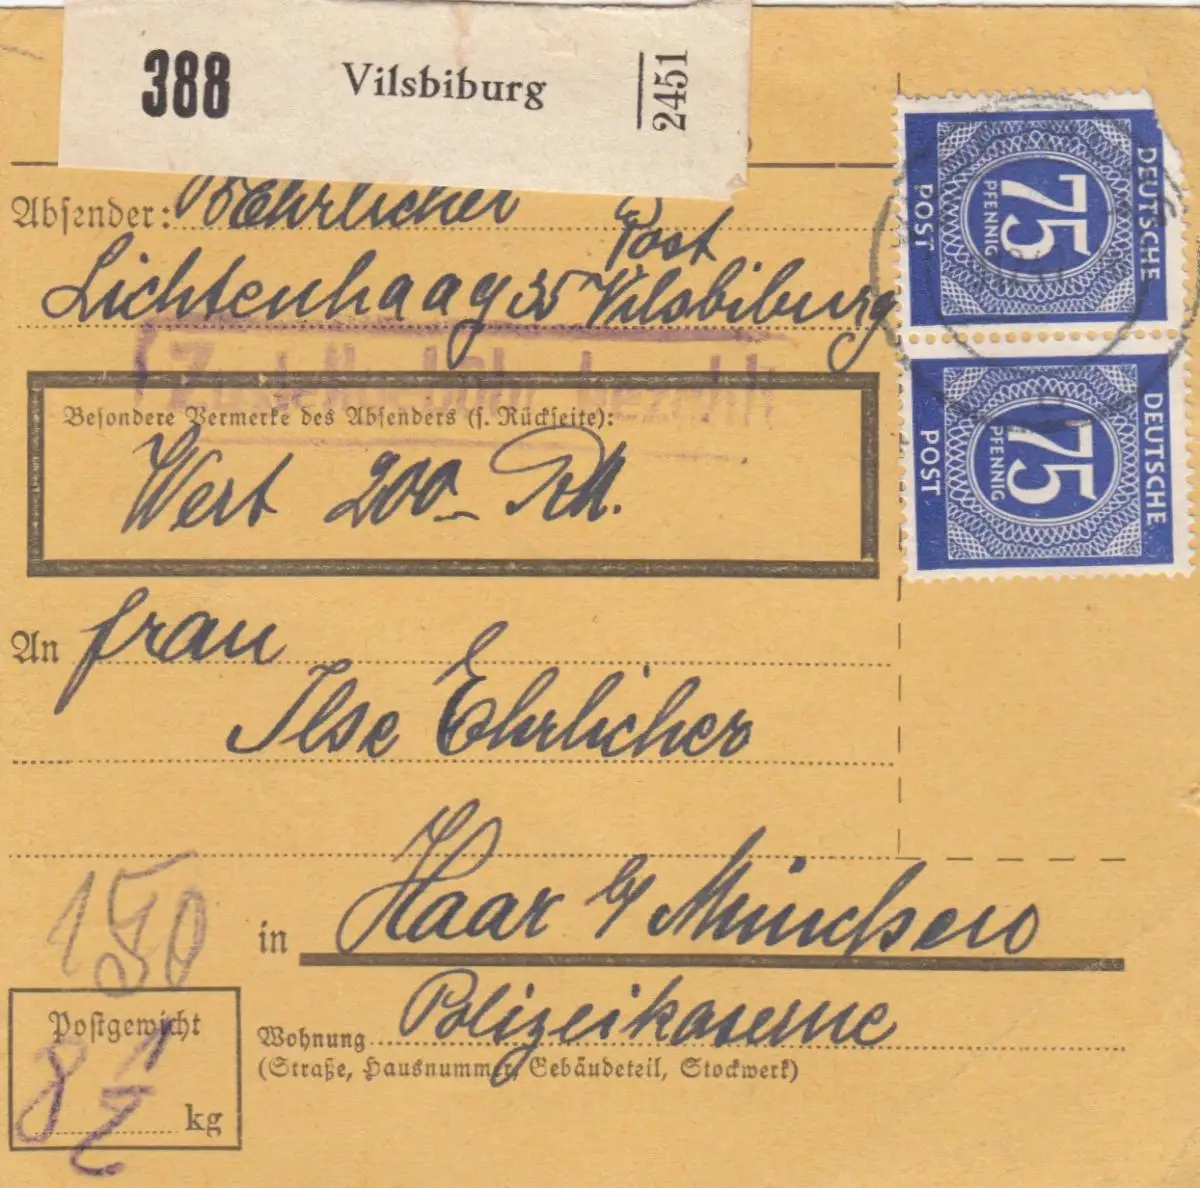 388 Vilsbiburg 2451
Absender: Ehrlicher
Post
Lichtenhaag 35 Vilsbiburg
Zustellgebühr bezahlt
Besondere Vermerke des Absenders (s. Rückseite):
Wert 200 RM.
An Frau
Ilse Ehrlicher
150
in Haar b/ München
Postgewicht
8 1/2 kg
Wohnung Polizeikaserne
(Straße, Hausnummer, Gebäudeteil, Stockwerk)
DEUTSCHE
75
PFENNIG
POST
DEUTSCHE
75
PFENNIG
POST